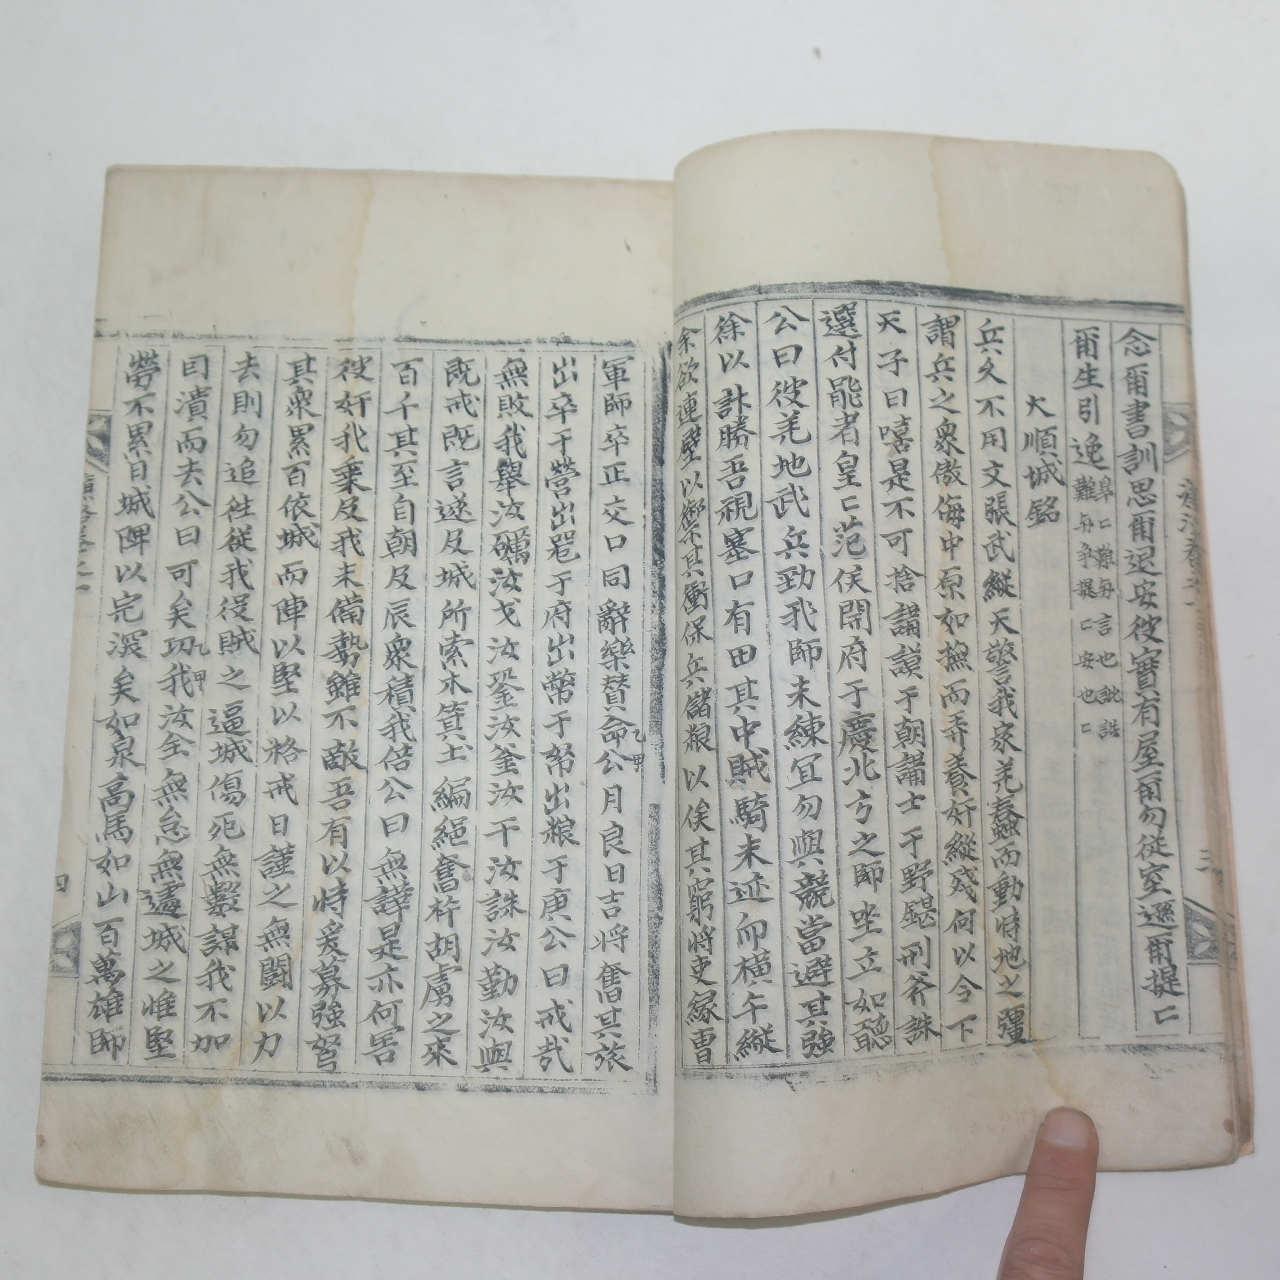 念爾書訓思爾退安彼實有屋爾勿從室遜爾提〻
爾生引逸
皐〻難毎言也訛誥
難毎爭提〻安也〻
大順城銘
兵久不用文張武縱天警我家羌蠢而動恃地之彊
謂兵之衆傲侮中原如撫而弄養奸縱殘何以令下
天子曰嘻是不可捨講謨于朝講士于野鍖刑斧誅
選付能者皇〻范侯開府于慶北方之師坐立如聽
公曰彼羌地武兵勁我師未練宜勿與競當避其強
徐以計勝吾視塞口有田其中賊騎未迹卯橫午縱
余欲連壁以禦其衝保兵儲粮以俟其窮將吏緣曹
三
軍師卒正交口同辭樂贊命公月良日吉將奮其旅
出卒于營出器于府出幣于帑出糧于庚公曰戒哉
無敗我舉汝礪汝戈汝鋈汝釜汝干汝誅汝勤汝與
既戒既言遂及城所索木箕土編絙奮杵胡虜之來
百千其至自朝及辰衆積我倍公曰無譁是亦何害
彼奸我乗及我未備勢雖不敵吾有以恃爰募強弩
其衆累百依城而陣以堅以格戒日謹之無鬭以力
去則勿追徃從我役賊之逼城傷死無數謀我不加
因潰而去公曰可矣功我汝全無怠無遽城之惟堅
勞不累日城陴以完深矣如泉高焉如山百萬雄師
四